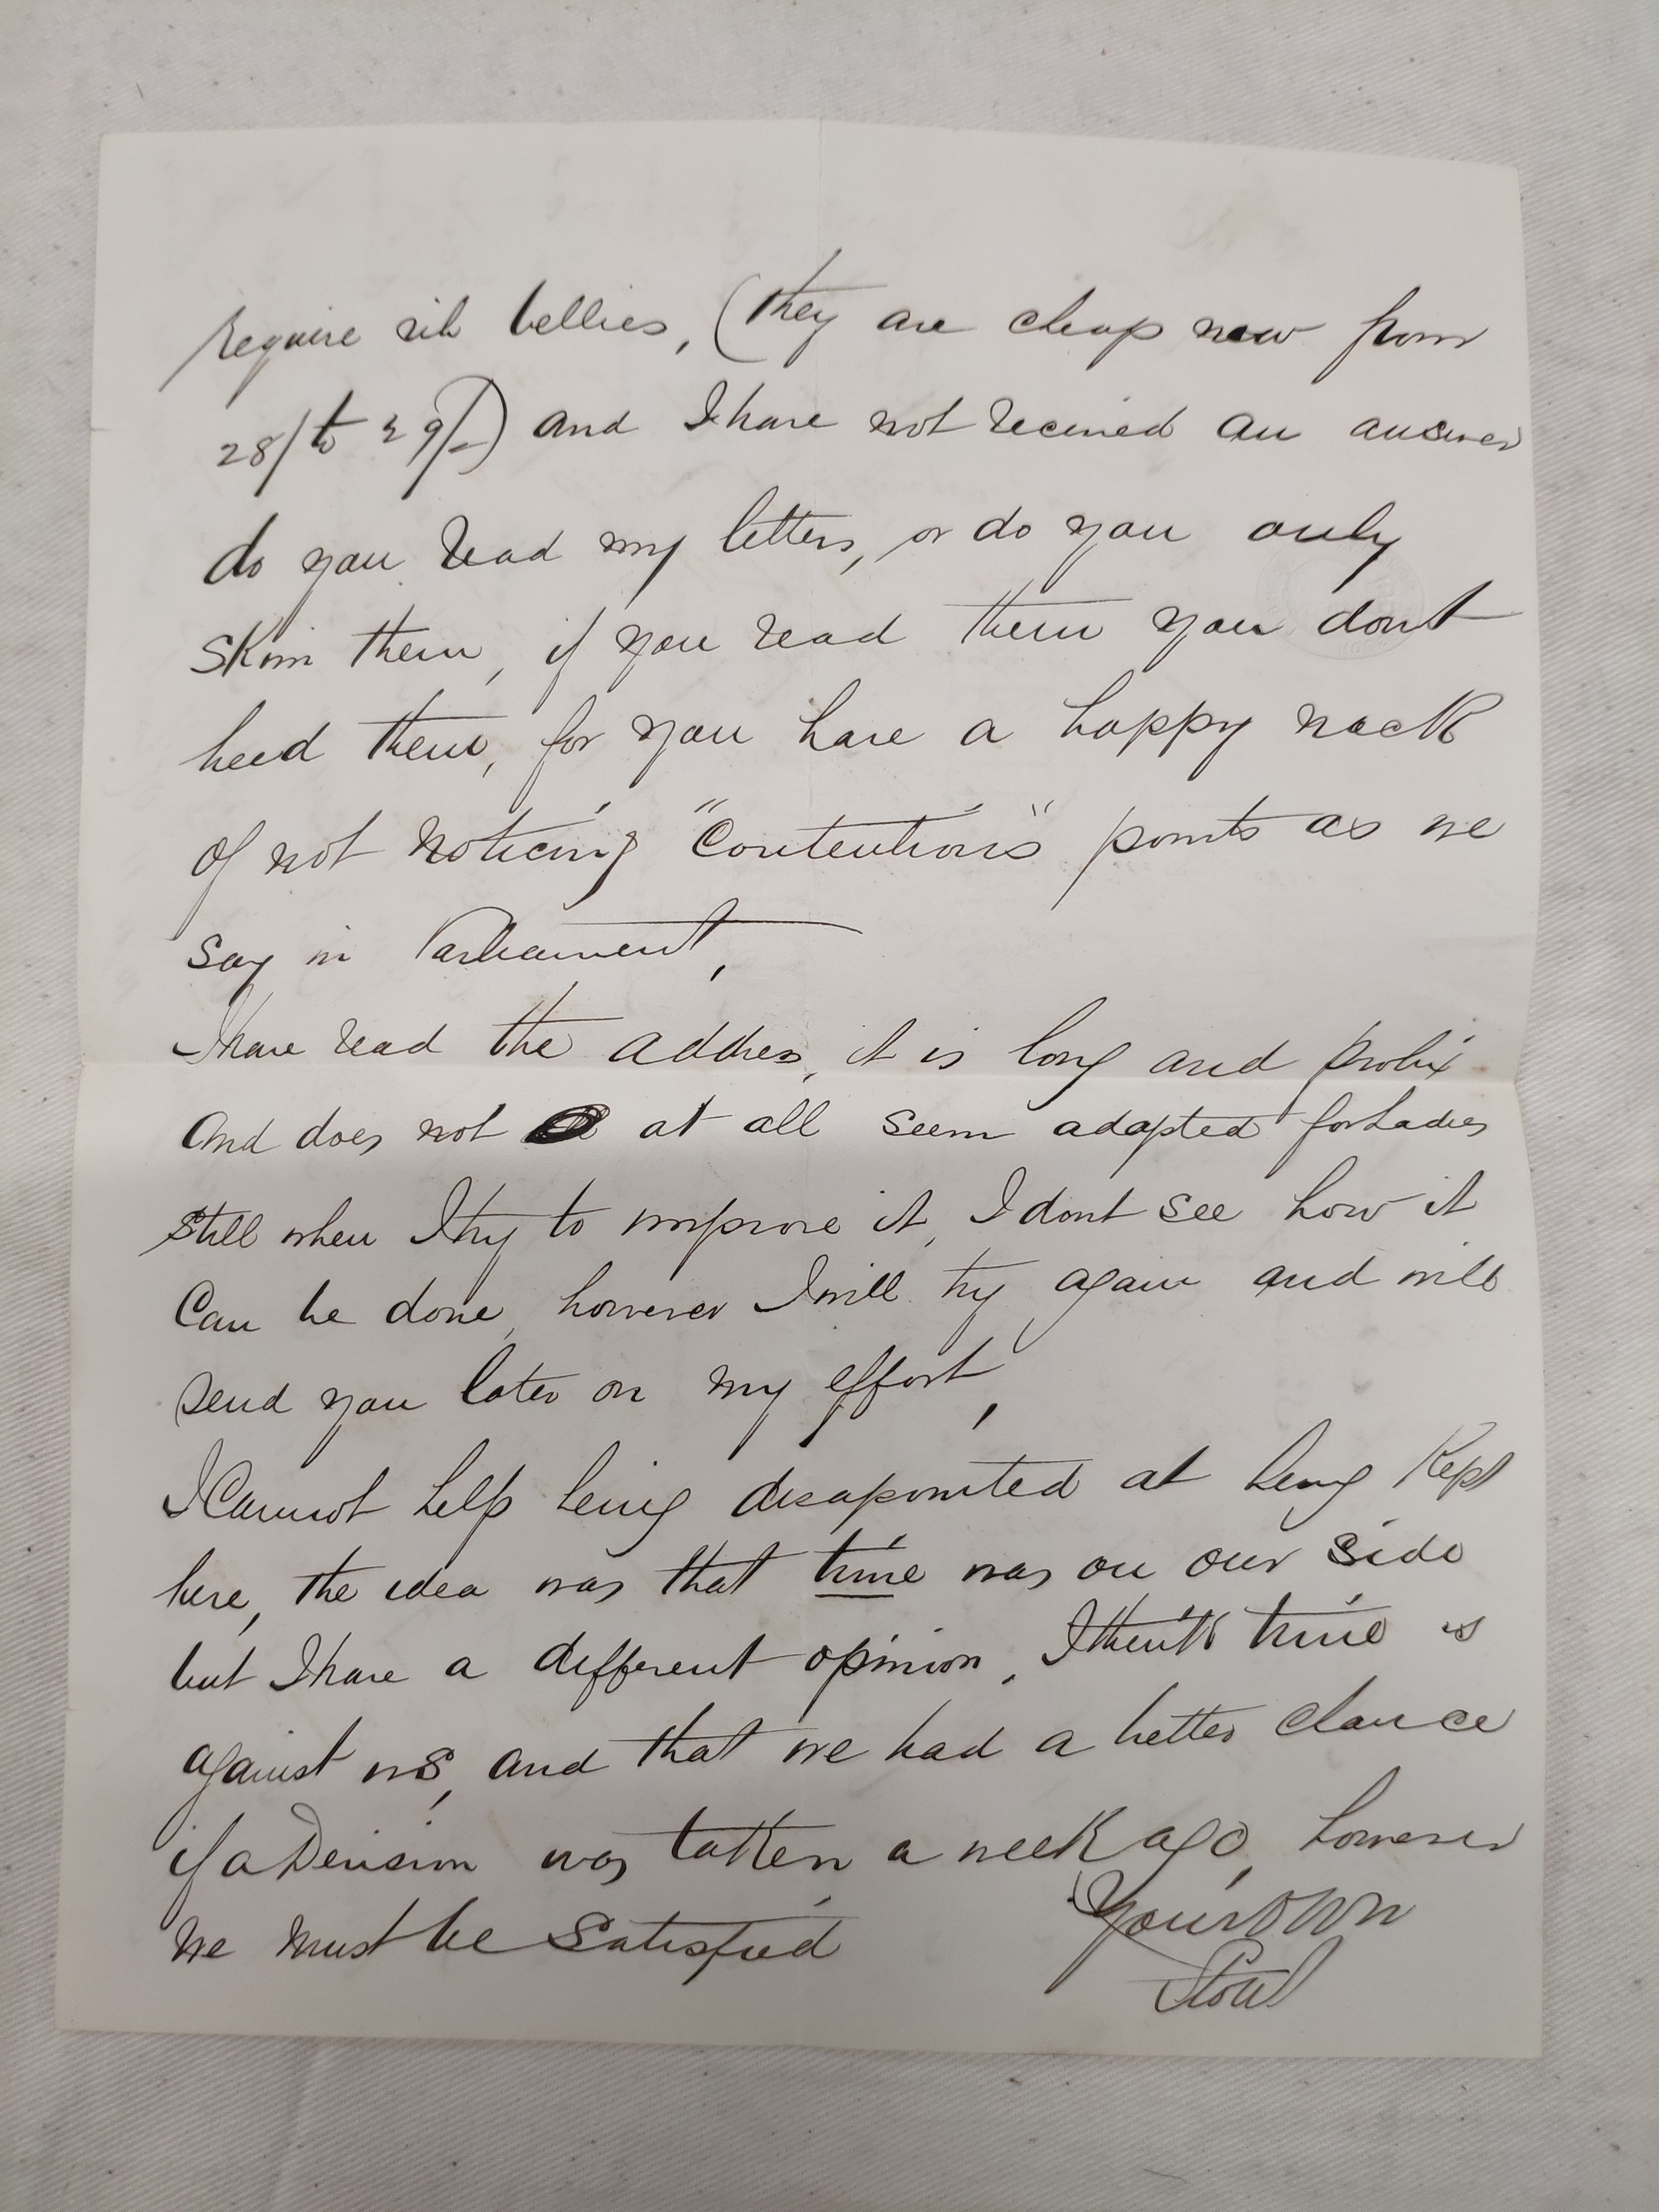 require rib bellies, (they are cheap now from
28/ to 29/-) and I have not received an answer
do you read my letters, or do you only
skim them, if you read them you dont
heed them, for you have a happy nack
of not noticing "Contentious" points as we
say in Parliament,
I have read the address, it is long and prolix
and does not at all seem adapted for Ladies
still when I try to improve it, I dont see how it
can be done, however I will try again and will
send you later on my effort,
I Cannot help being disapointed at being Kept
here, the idea was that time was on our side
but I have a different opinion, I think time is
against us, and that we had a better chance
if a Division was taken a week ago, however
we must be satisfied
Your own